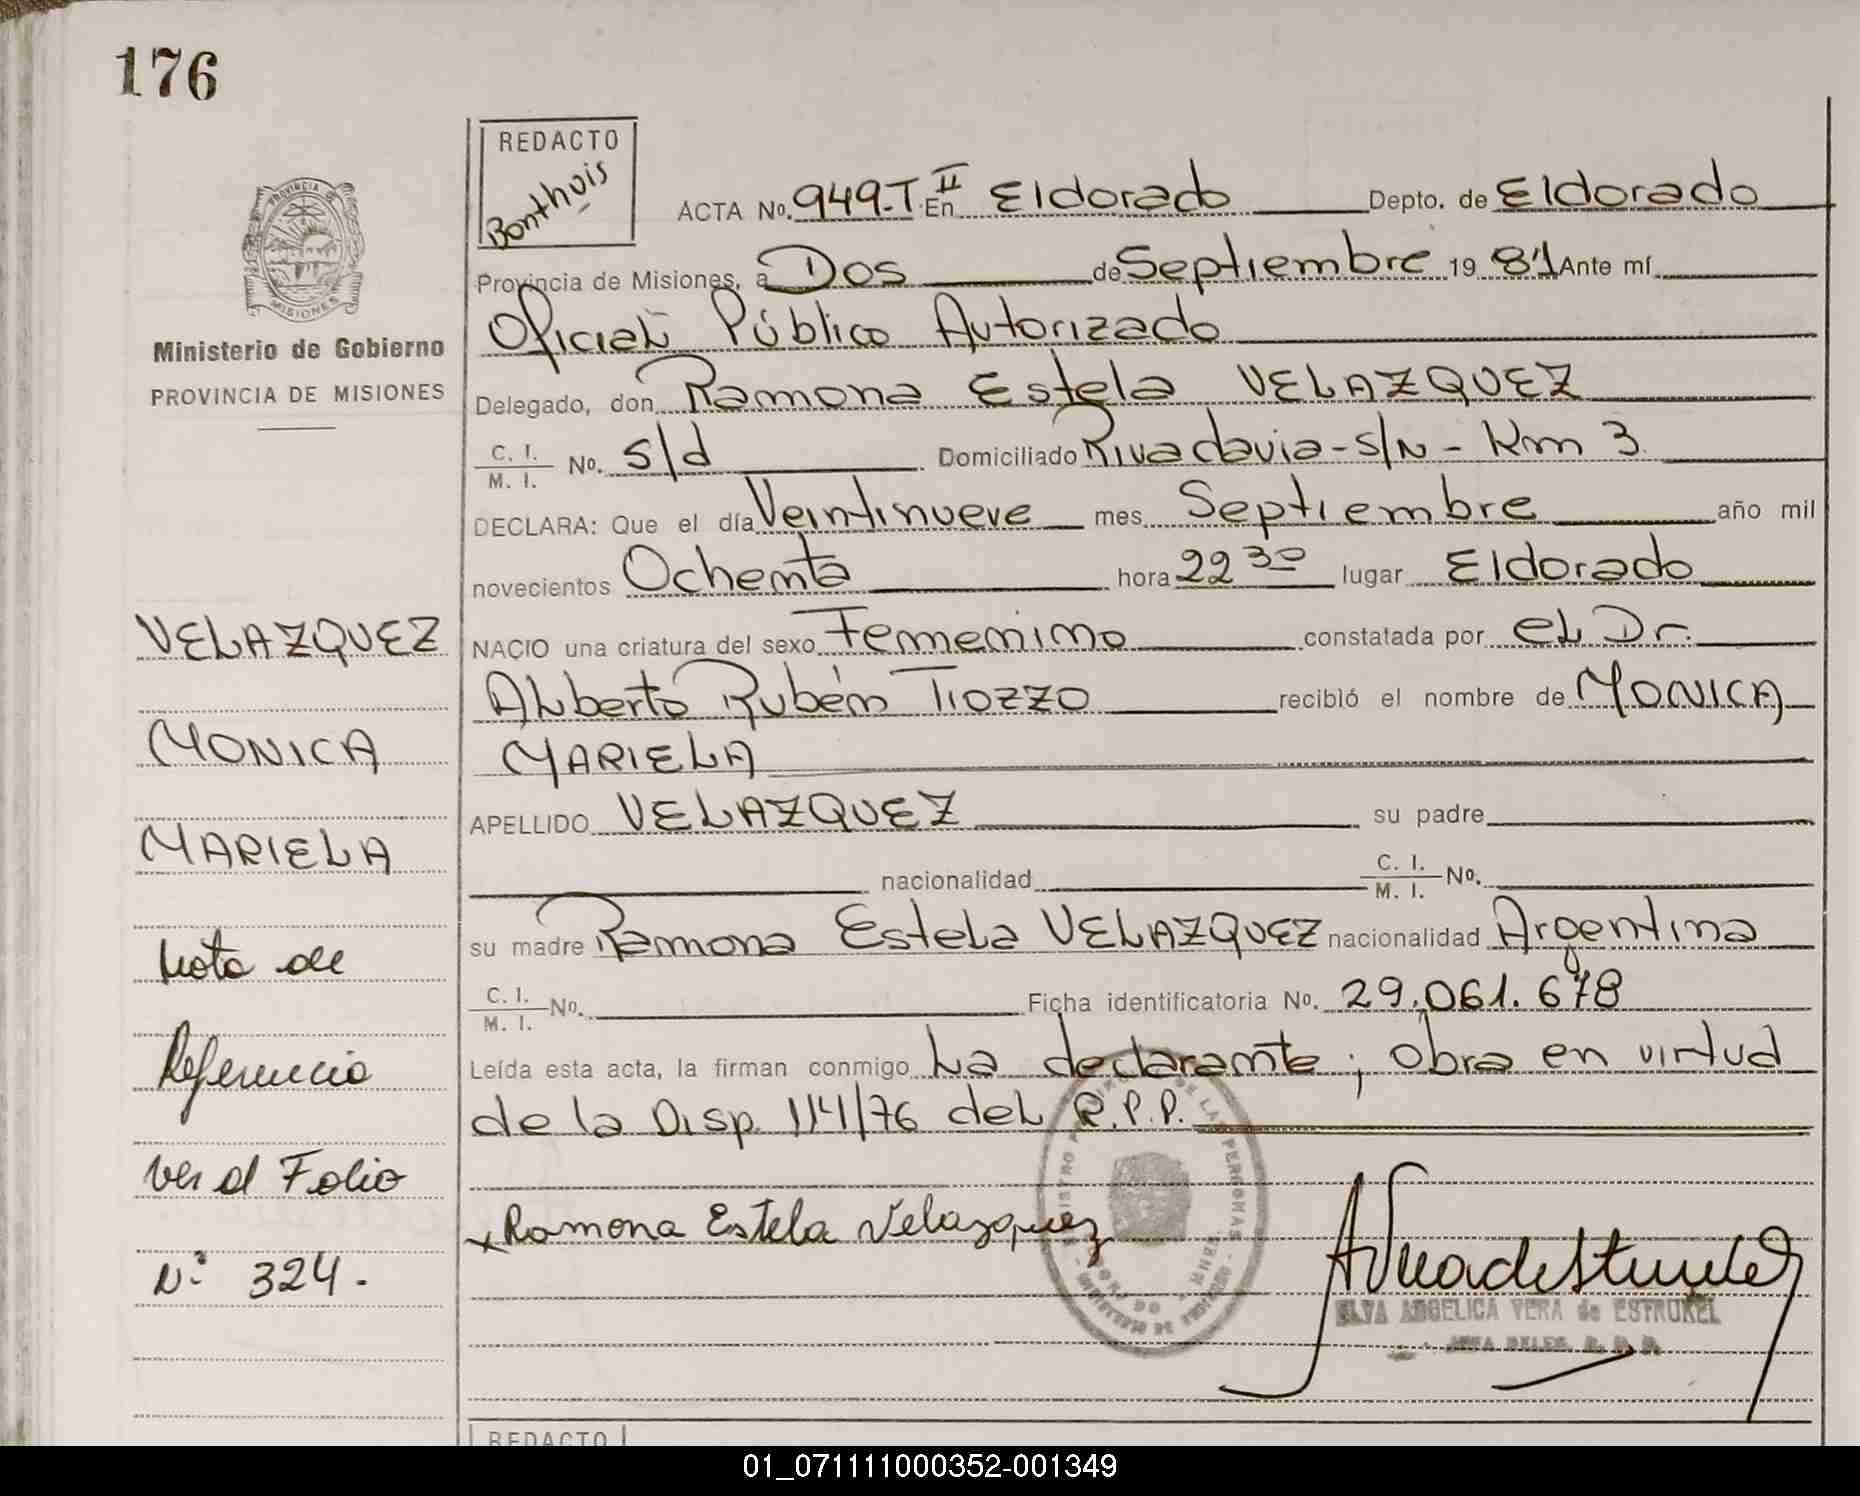 176
REDACTO
Bonthuis
PROVINCIA DE MISIONES
Ministerio de Gobierno
PROVINCIA DE MISIONES
ACTA No. 949-T II En Eldorado Depto. de Eldorado
Provincia de Misiones, a Dos de Septiembre 19 81 Ante mí
Oficial Público Autorizado
Delegado, don Ramona Estela VELAZQUEZ
C. I. / M. I. No. s/d Domiciliado Rivadavia-S/N-Km 3
DECLARA: Que el día Veintinueve mes Septiembre año mil
novecientos Ochenta hora 22 30 lugar Eldorado
NACIO una criatura del sexo Femenino constatada por el Dr.
Alberto Rubén Tiozzo recibió el nombre de MONICA
MARIELA
APELLIDO VELAZQUEZ su padre
nacionalidad C. I. / M. I. No.
su madre Ramona Estela VELAZQUEZ nacionalidad Argentina
C. I. / M. I. No. Ficha identificatoria No. 29.061.678
Leída esta acta, la firman conmigo La declarante; obra en virtud
de la Disp. 114/76 del R.P.P.
Ramona Estela Velazquez
ELVA ANGELICA VERA de ESTRUKEL
VELAZQUEZ
MONICA
MARIELA
Nota de
Referencia
ver al Folio
Nº 324.
REDACTO
01_071111000352-001349